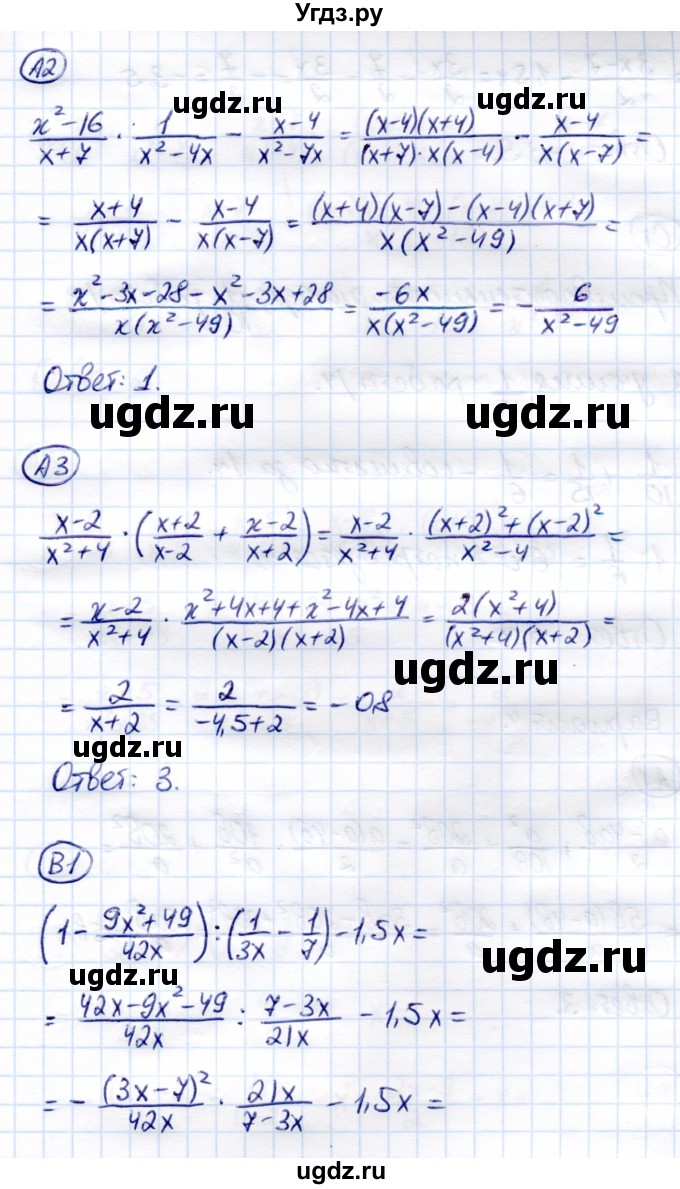 Угдз.ру
А2
ugdz.ru ugdz.ru
(x²-16)/(x+7) · 1/(x²-4x) - (x-4)/(x²-7x) = (x-4)(x+4)/((x+7)·x(x-4)) - (x-4)/(x(x-7)) =
= (x+4)/(x(x+7)) - (x-4)/(x(x-7)) = ((x+4)(x-7)-(x-4)(x+7))/(x(x²-49)) =
= (x²-3x-28-x²-3x+28)/(x(x²-49)) = -6x/(x(x²-49)) = - 6/(x²-49)
Ответ: 1.
ugdz.ru ugdz.ru
А3
(x-2)/(x²+4) · ((x+2)/(x-2) + (x-2)/(x+2)) = (x-2)/(x²+4) · ((x+2)²+(x-2)²)/(x²-4) =
= (x-2)/(x²+4) · (x²+4x+4+x²-4x+4)/((x-2)(x+2)) = 2(x²+4)/((x²+4)(x+2)) =
ugdz.ru
= 2/(x+2) = 2/(-4,5+2) = - 0,8
ugdz.ru
Ответ: 3.
В1
(1 - (9x²+49)/42x) : (1/3x - 1/7) - 1,5x =
ugdz.ru ugdz.ru
= (42x-9x²-49)/42x : (7-3x)/21x - 1,5x =
= - (3x-7)²/42x · 21x/(7-3x) - 1,5x =
ugdz.ru